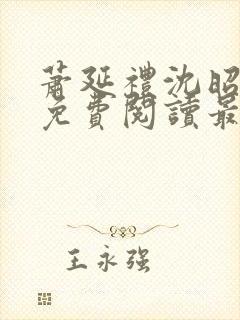 蕭延禮沈昭
免費閱讀最
王永强